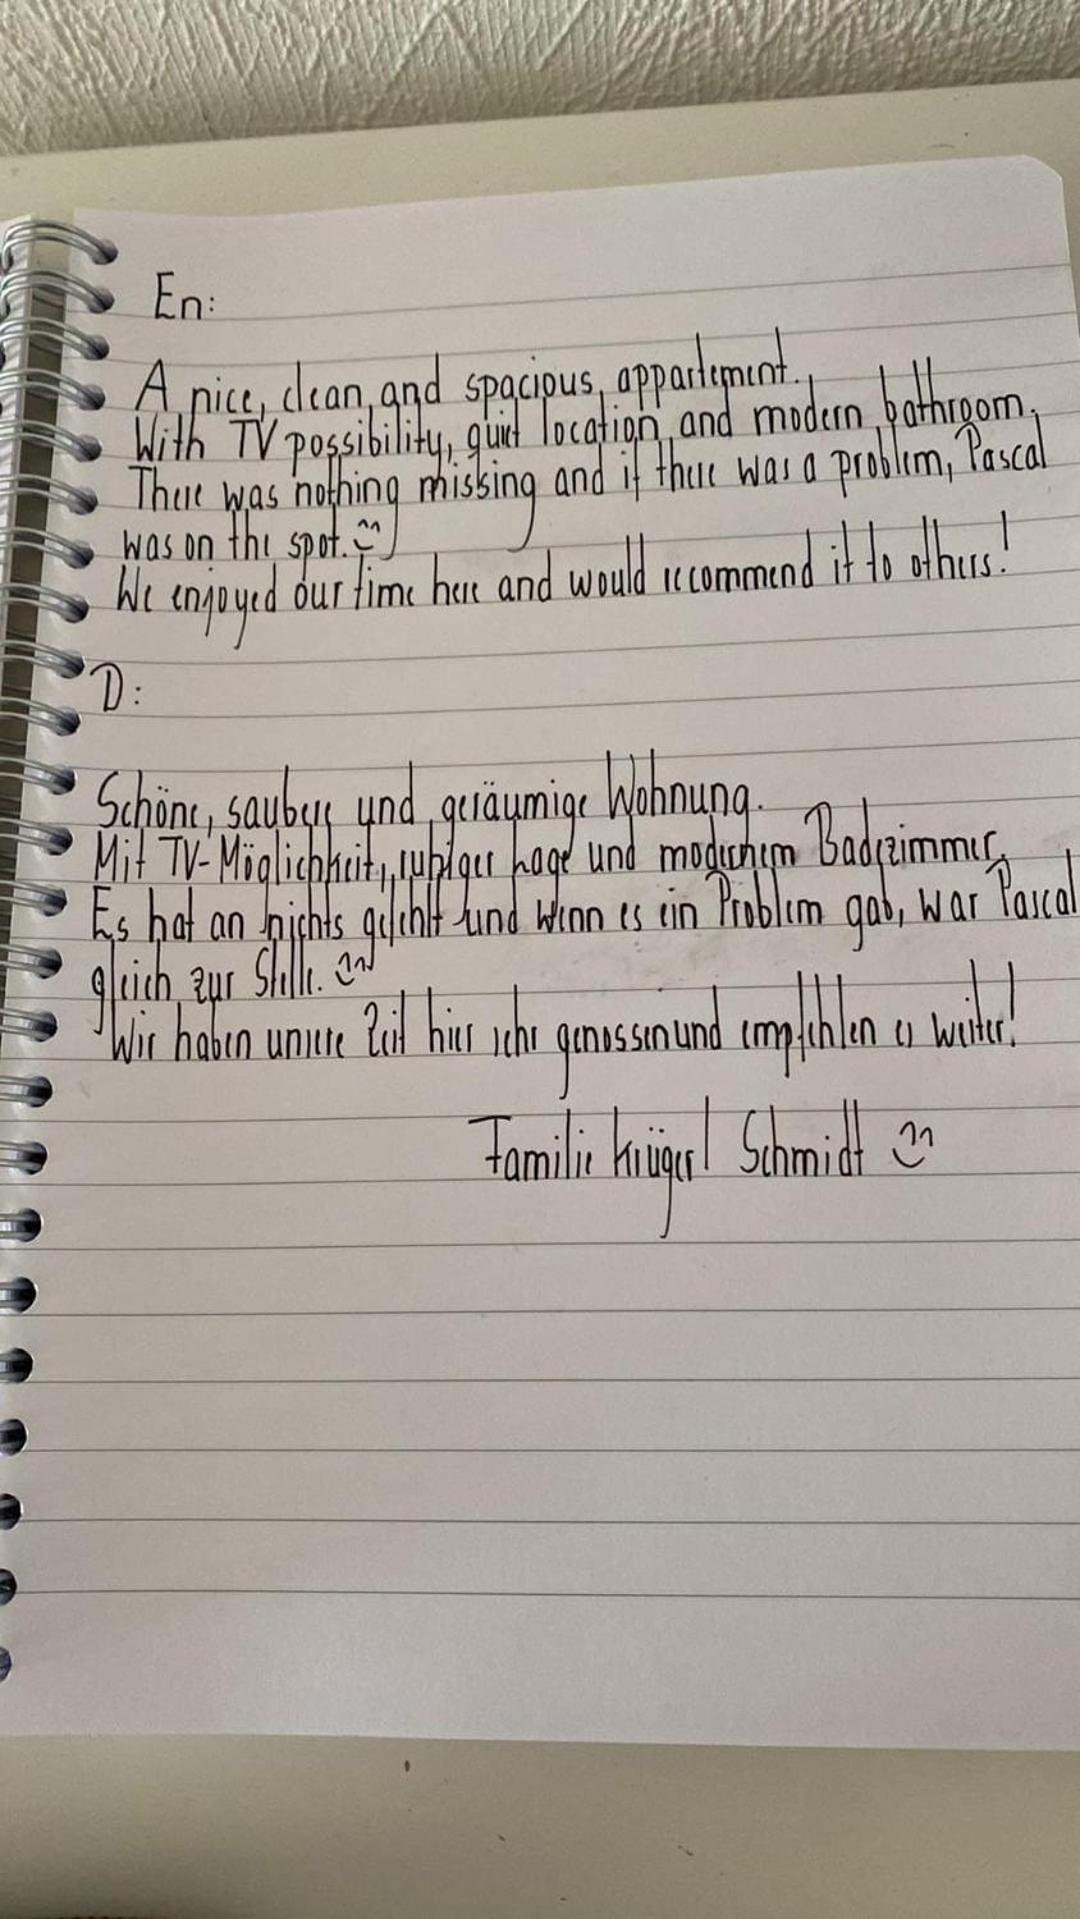 En:
A nice, clean and spacious appartement.
With TV possibility, quiet location and modern bathroom.
There was nothing missing and if there was a problem, Pascal
was on the spot.
We enjoyed our time here and would recommend it to others!
D:
Schöne, saubere und geräumige Wohnung.
Mit TV-Möglichkeit, ruhiger Lage und modernem Badezimmer.
Es hat an nichts gefehlt und wenn es ein Problem gab, war Pascal
gleich zur Stelle.
Wir haben unsere Zeit hier sehr genossen und empfehlen es weiter!
Familie Krüger/ Schmidt